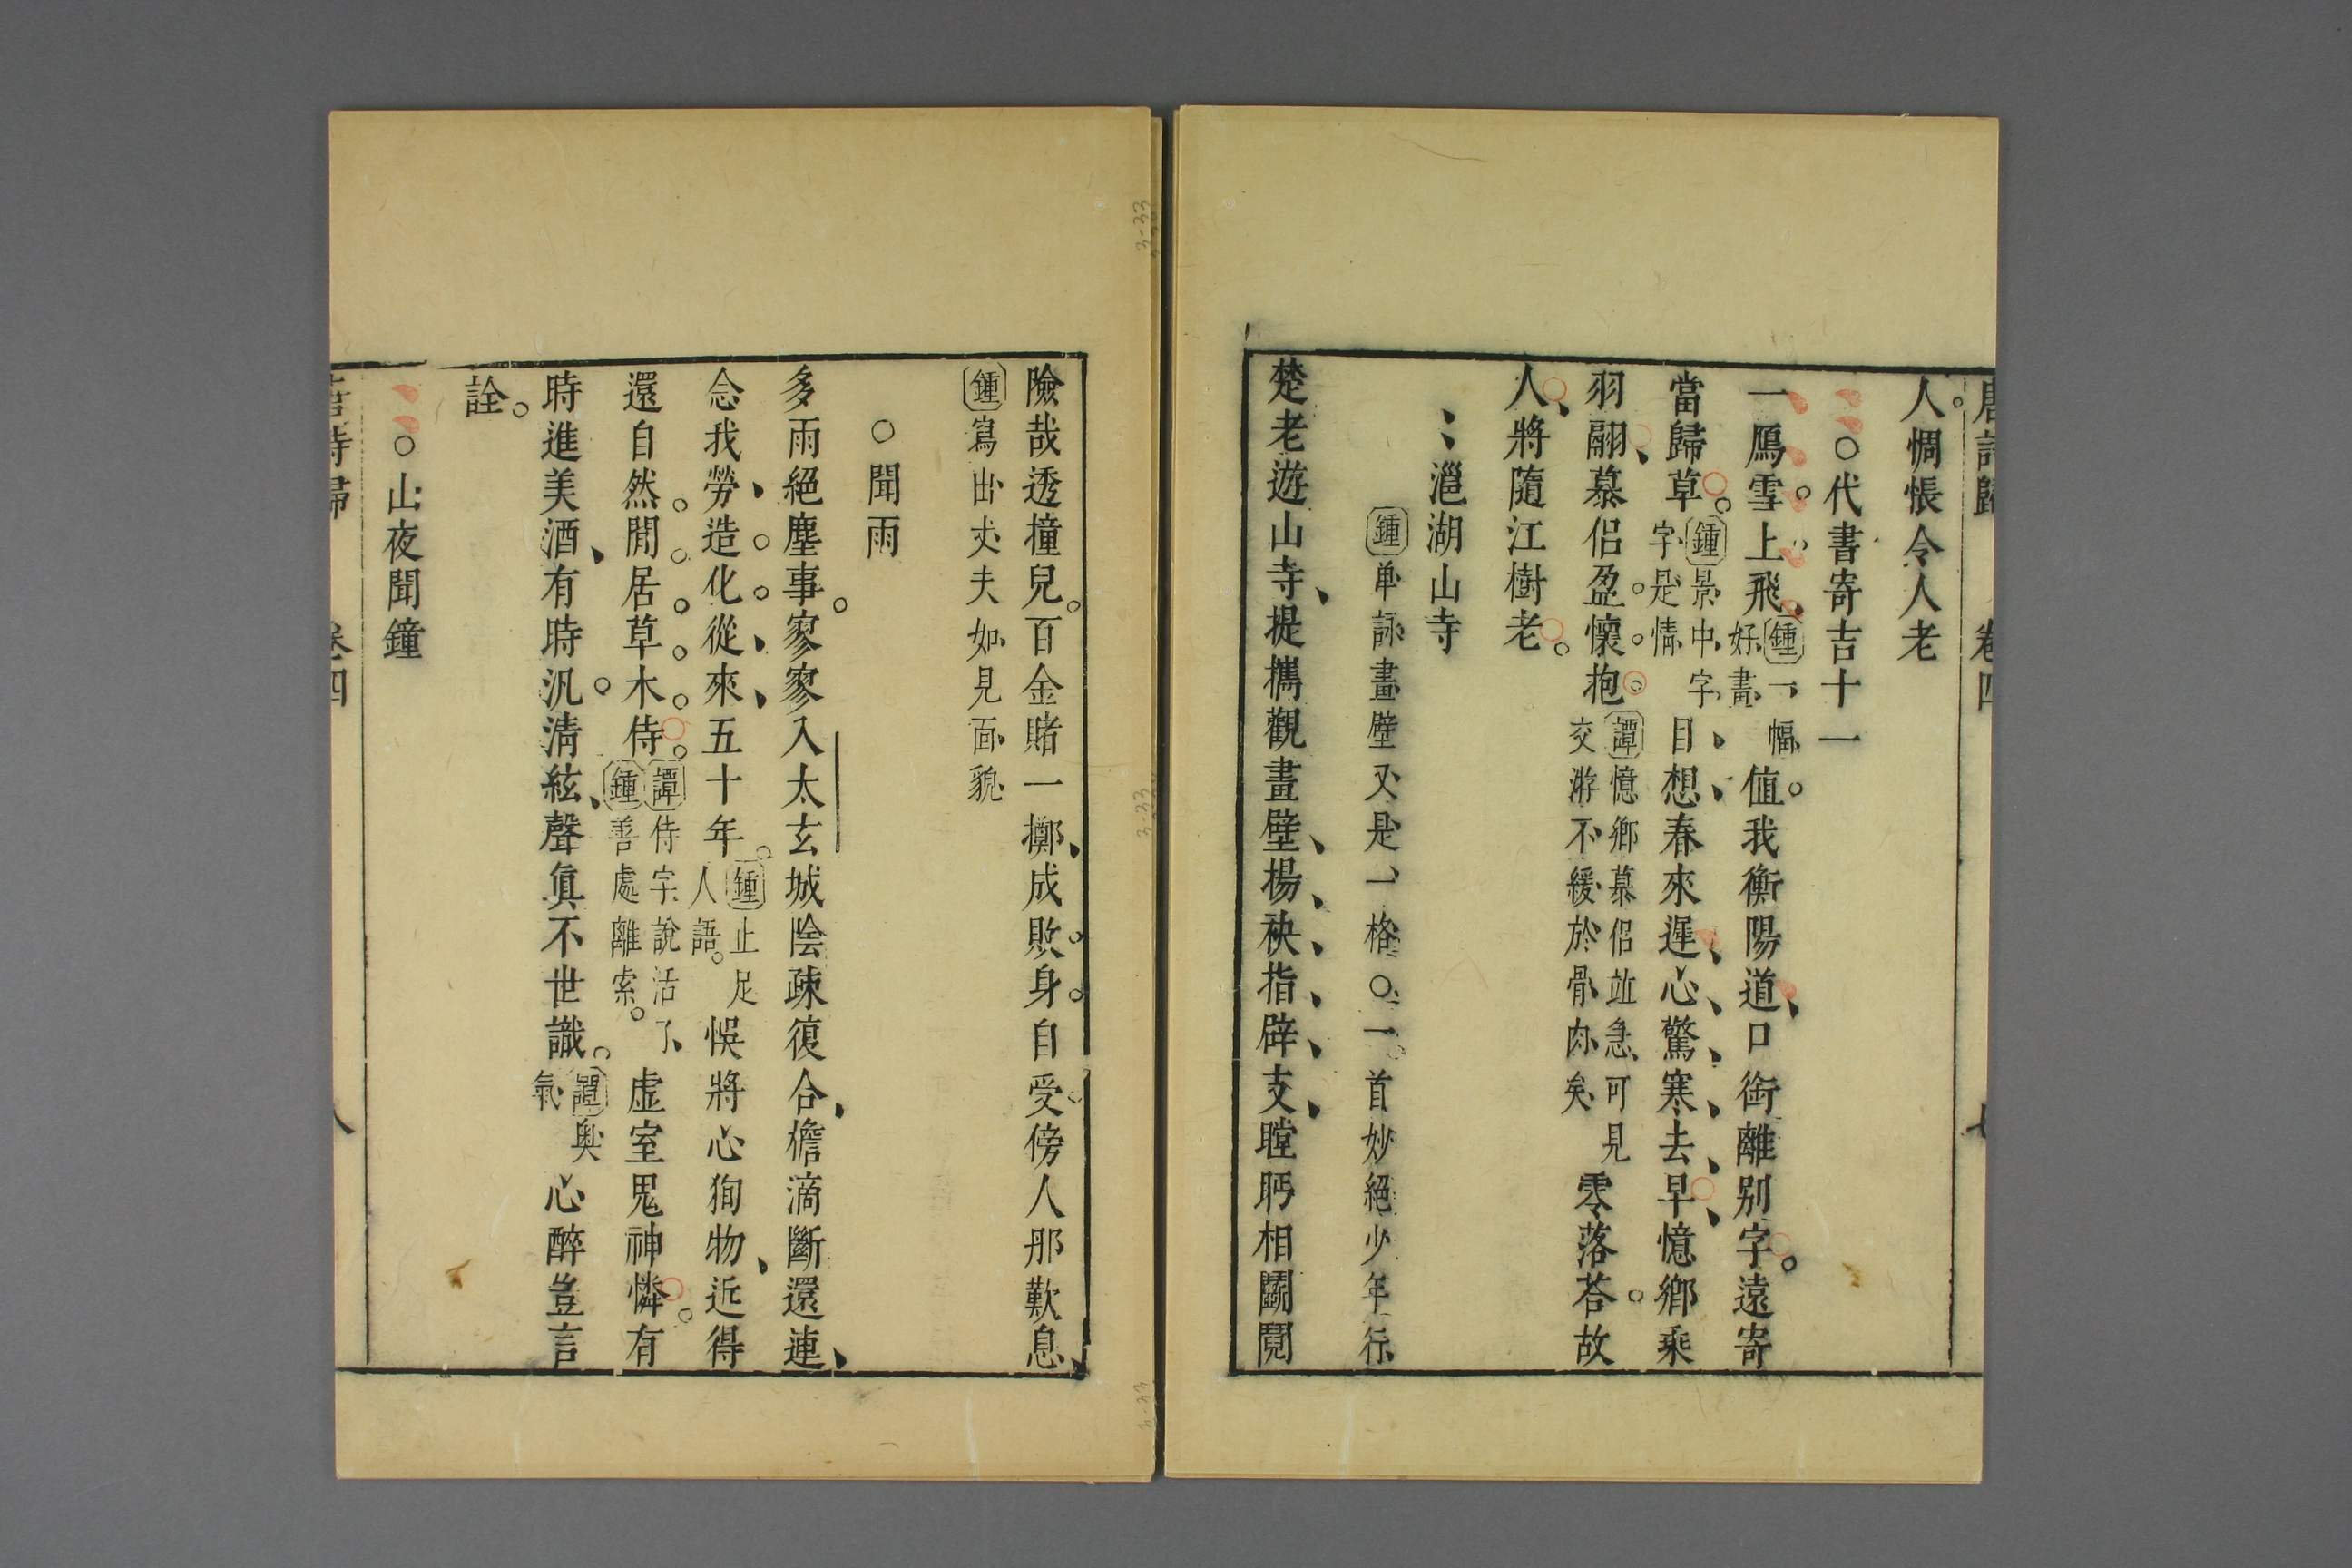 唐詩歸 卷四
人惆悵令人老
○代書寄吉十一
一鴈雪上飛鍾一幅好畫值我衡陽道口銜離別字遠寄
當歸草鍾景中字字是情目想春來遲心驚寒去早憶鄉乘
羽翮慕侶盈懷抱譚憶鄉慕侶竝急可見交游不緩於骨肉矣零落荅故
人將隨江樹老
灉湖山寺
鍾单詠畫壁又是一格○一首妙絕少年行
楚老遊山寺提攜觀畫壁揚袂指辟支瞠眄相鬭鬩
險哉透撞兒百金賭一擲成敗身自受傍人那歎息
鍾寫出丈夫如見面貌
○聞雨
多雨絕塵事寥寥入太玄城陰疎復合檐滴斷還連
念我勞造化從來五十年鍾止足人語悞將心狥物近得
還自然閒居草木侍譚侍字說活了鍾善處離索虛室鬼神憐有
時進美酒有時汎清絃聲眞不世識譚奥氣心醉豈言
詮
○山夜聞鐘
詩歸 卷四 八